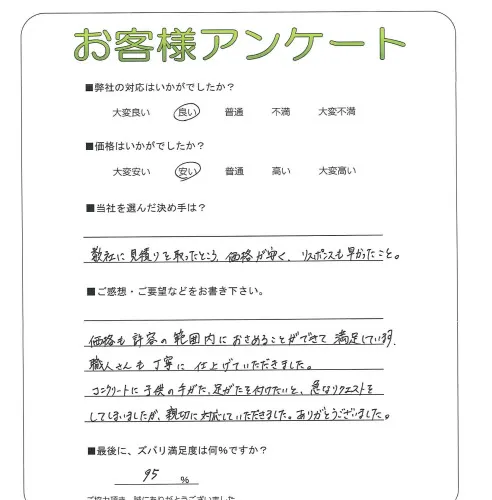 お客様アンケート
■弊社の対応はいかがでしたか？
大変良い 良い 普通 不満 大変不満
■価格はいかがでしたか？
大変安い 安い 普通 高い 大変高い
■当社を選んだ決め手は？
数社に見積りを取ったところ、価格が安く、リスポンスも早かったこと。
■ご感想・ご要望などをお書き下さい。
価格も許容の範囲内におさめることができて満足しています。
職人さんも丁寧に仕上げていただきました。
コンクリートに子供の手がた、足がたを付けたいと、急なリクエストを
してしまいましたが、親切に対応していただきました。ありがとうございました。
■最後に、ズバリ満足度は何％ですか？
95 ％
ご協力頂き、誠にありがとうございました